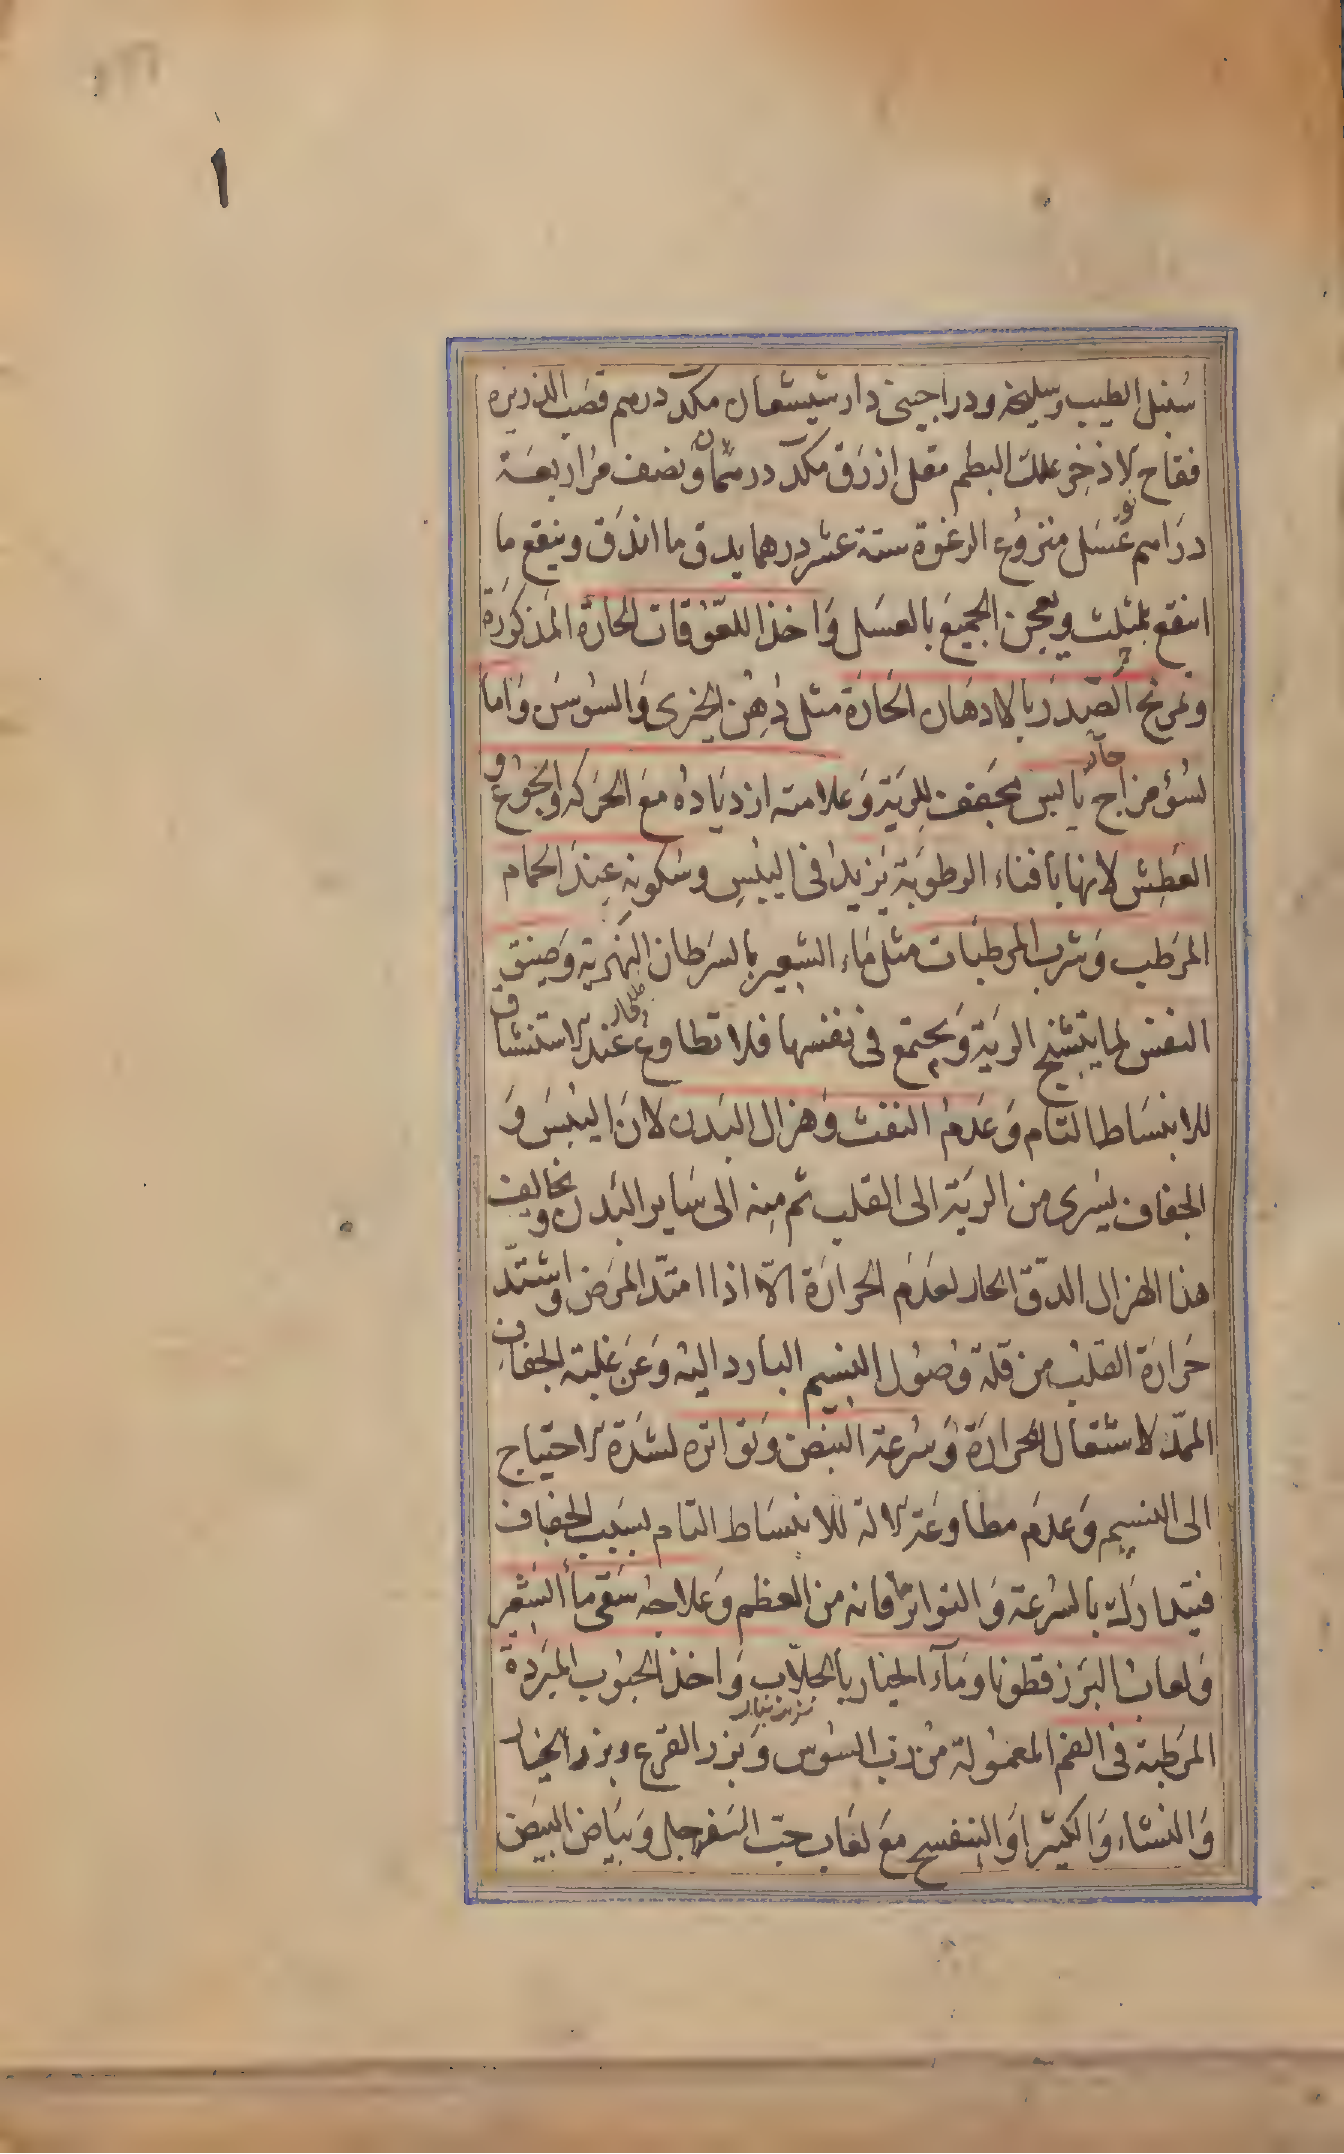 ١
سُنبل الطيب وسليخه ودراجيني دار شيشعان مكد درهم قصب الذريره
فقاح الاذخر علك البطم مقل ازرق مكد درهمان ونصف مر اربعة
دراهم عسل منزوع الرغوة ستة عشر درهما يدق ما اندق وينقع ما
انتقع بمثلث ويعجن الجميع بالعسل وَاخذ اللعوقات الحارة المذكورة
وتمريخ الصدر بالادهان الحَارَة مثل دُهن الخيرى وَالسوسن وَاما
لسُوء مزاج حار يابس مجفف للرية وَعلامته ازدياده مع الحركه والجوع و
العَطش لانها بافناء الرطوبة يزيد في اليبس وسكونه عِند الحمام
المرَطب وَشرب المرطبات مثل مَاء الشعير بالسَرطان النهرية وضيق
النفس لما يتشنج الرية وَيجتمع في نفسها فلا تطاوع عند الاستنشاق
للانبسَاط التام وَعَدم النفث وَهزال البدن لان اليبسَ وَ
الجفاف يسرى من الرية الى القلب ثم مِنه الى سَاير البَدن ويخالف
هذا الهزال الدق الحار لعَدَم الحرارَة الّا اذا امتدّ المرَض واشتدّ
حَرارَة القلب من قلة وصُول النسيم البارد اليه وَعَن غلبة الجفاف
الممدّ لاشتعال الحرارَة وَسُرعة النبض وَتواتره لشدَة الاحتياج
الى النسيم وَعدَم مطاوعَة الالة للانبسَاط التام بسَبب الجفاف
فيتدارك بالسُرعة وَالتواتر ما فاته من العظم وَعلاجهُ سَقي ماء الشعير
وَلعاب البزر قطونا ومَاء الخيار بالجلّاب وَاخذ الحبُوب المبرَدة
المرَطبة في الفم المعمُولة من رب السُوس وَبزر القرع وبزر الخيار
وَالنشاء وَالكثيرا وَالبنفسج مَع لعَاب حبّ السَفرجل وَبيَاض البيَض